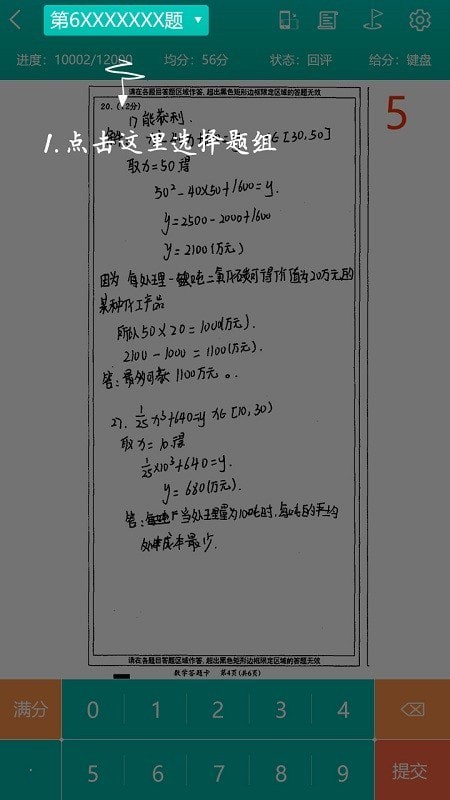 第6XXXXXXX题
进度：10002/12000 均分：56分 状态：回评 给分：键盘
请在各题目答题区域作答，超出黑色矩形边框限定区域的答题无效
20. (12分)
5
1) 能获利.
∈[30,50]
1.点击这里选择题组
取x=50得
50²-40×50+1600=y.
y=2500-2000+1600
y=2100(万元)
因为 每处理一吨二氧化碳可得价值为20万元的
某种化工产品
所以 50×20=1000(万元).
2100-1000=1100(万元).
答：最多可获1100万元。
27. 1/25 x³+640=y x∈[10,30)
取x=10得
1/25×10³+640=y.
y=680(万元).
答：当处理量为10吨时,每吨的平均
处理成本最少.
请在各题目答题区域作答，超出黑色矩形边框限定区域的答题无效
数学答题卡 第4页(共6页)
满分 0 1 2 3 4
· 5 6 7 8 9 提交